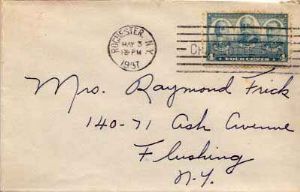 ROCHESTER, N.Y.
MAY 3
1937
FOUR CENTS
Mrs. Raymond Frick
140-71 Ash Avenue
Flushing
N.Y.